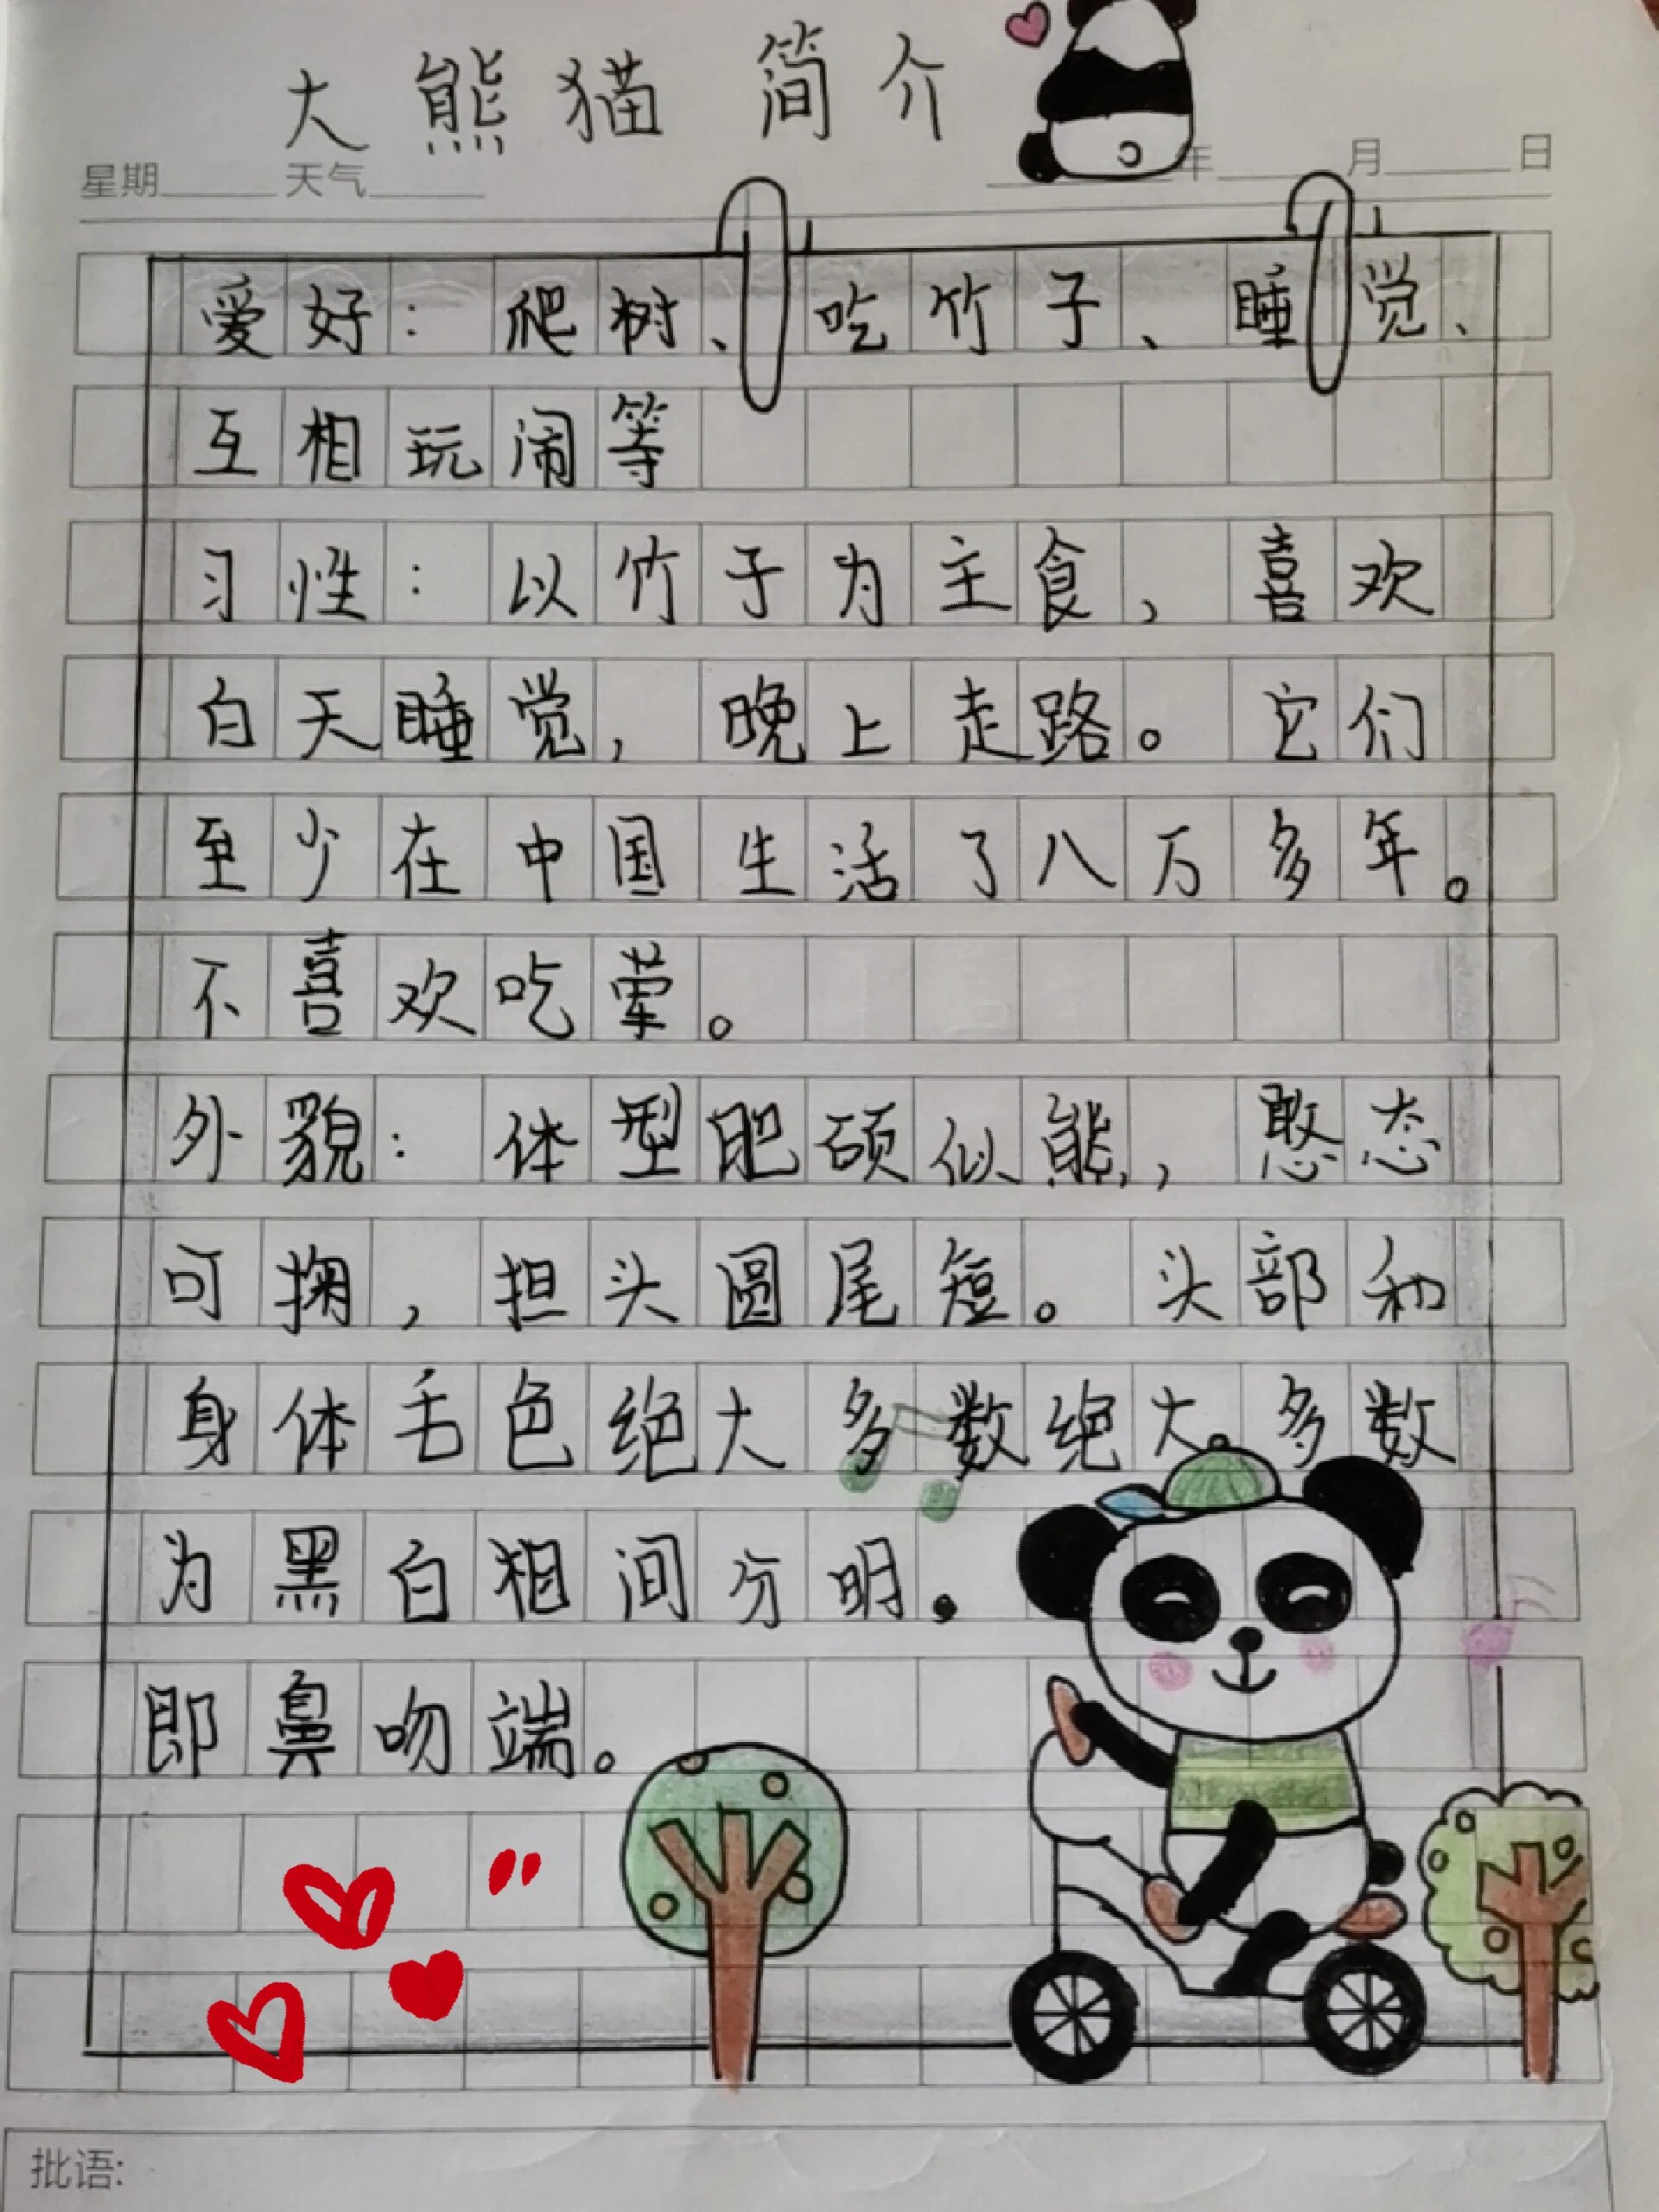 大熊猫简介
星期 天气 年 月 日
爱好：爬树、吃竹子、睡觉、
互相玩闹等
习性：以竹子为主食，喜欢
白天睡觉，晚上走路。它们
至少在中国生活了八万多年。
不喜欢吃荤。
外貌：体型肥硕似熊，憨态
可掬，担头圆尾短。头部和
身体毛色绝大多数绝大多数
为黑白相间分明.
即鼻吻端。
批语: